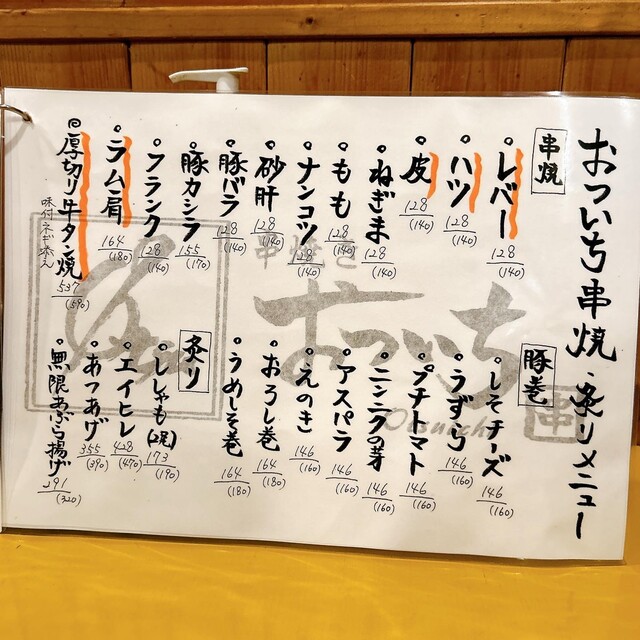 おついち串焼・炙りメニュー
串焼
レバー 128 (140)
ハツ 128 (140)
皮 128 (140)
ねぎま 128 (140)
もも 128 (140)
ナンコツ 128 (140)
砂肝 128 (140)
豚バラ 128 (140)
豚カシラ 155 (170)
フランク 128 (140)
ラム肩 164 (180)
厚切り牛タン焼 537 (590)
味付ネギ添え
豚巻
しそチーズ 146 (160)
うずら 146 (160)
プチトマト 146 (160)
ニンニクの芽 146 (160)
アスパラ 146 (160)
えのき 146 (160)
おろし巻 164 (180)
うめしそ巻 164 (180)
炙り
ししゃも(2尾) 173 (190)
エイヒレ 428 (470)
あつあげ 355 (390)
無限あぶら揚げ 291 (320)
串焼き
おついち
串